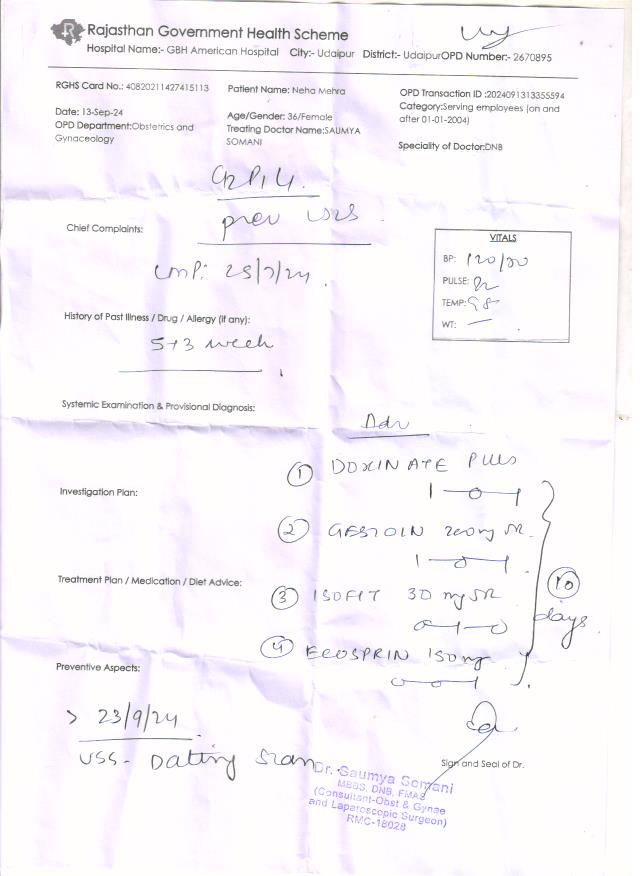 Rajasthan Government Health Scheme
Hospital Name:- GBH American Hospital City:- Udaipur District:- UdaipurOPD Number:- 2670895
RGHS Card No.: 40820211427415113
Patient Name: Neha Mehra
OPD Transaction ID :2024091313355594
Category:Serving employees (on and after 01-01-2004)
Date: 13-Sep-24
Age/Gender: 36/Female
OPD Department:Obstetrics and Gynaceology
Treating Doctor Name:SAUMYA SOMANI
Speciality of Doctor:DNB
G2P1L1
prev LSCS
Chief Complaints:
LMP:
VITALS
BP: 120/
PULSE:
TEMP: 98
WT: —
History of Past Illness / Drug / Allergy (if any):
5+3 week
Systemic Examination & Provisional Diagnosis:
Adv
① DOXINATE PLUS
1—0—1
Investigation Plan:
② 200mg SR
1—0—1
Treatment Plan / Medication / Diet Advice:
③ ISOFIT 30 mg SR
0—1—0
10 days
④ ECOSPRIN 150mg
Preventive Aspects:
> 23/9/24
USS - Dating Scan
Sign and Seal of Dr.
Dr. Saumya Somani
MBBS, DNB, FMAS
(Consultant-Obst & Gynae
and Laparoscopic Surgeon)
RMC-18028